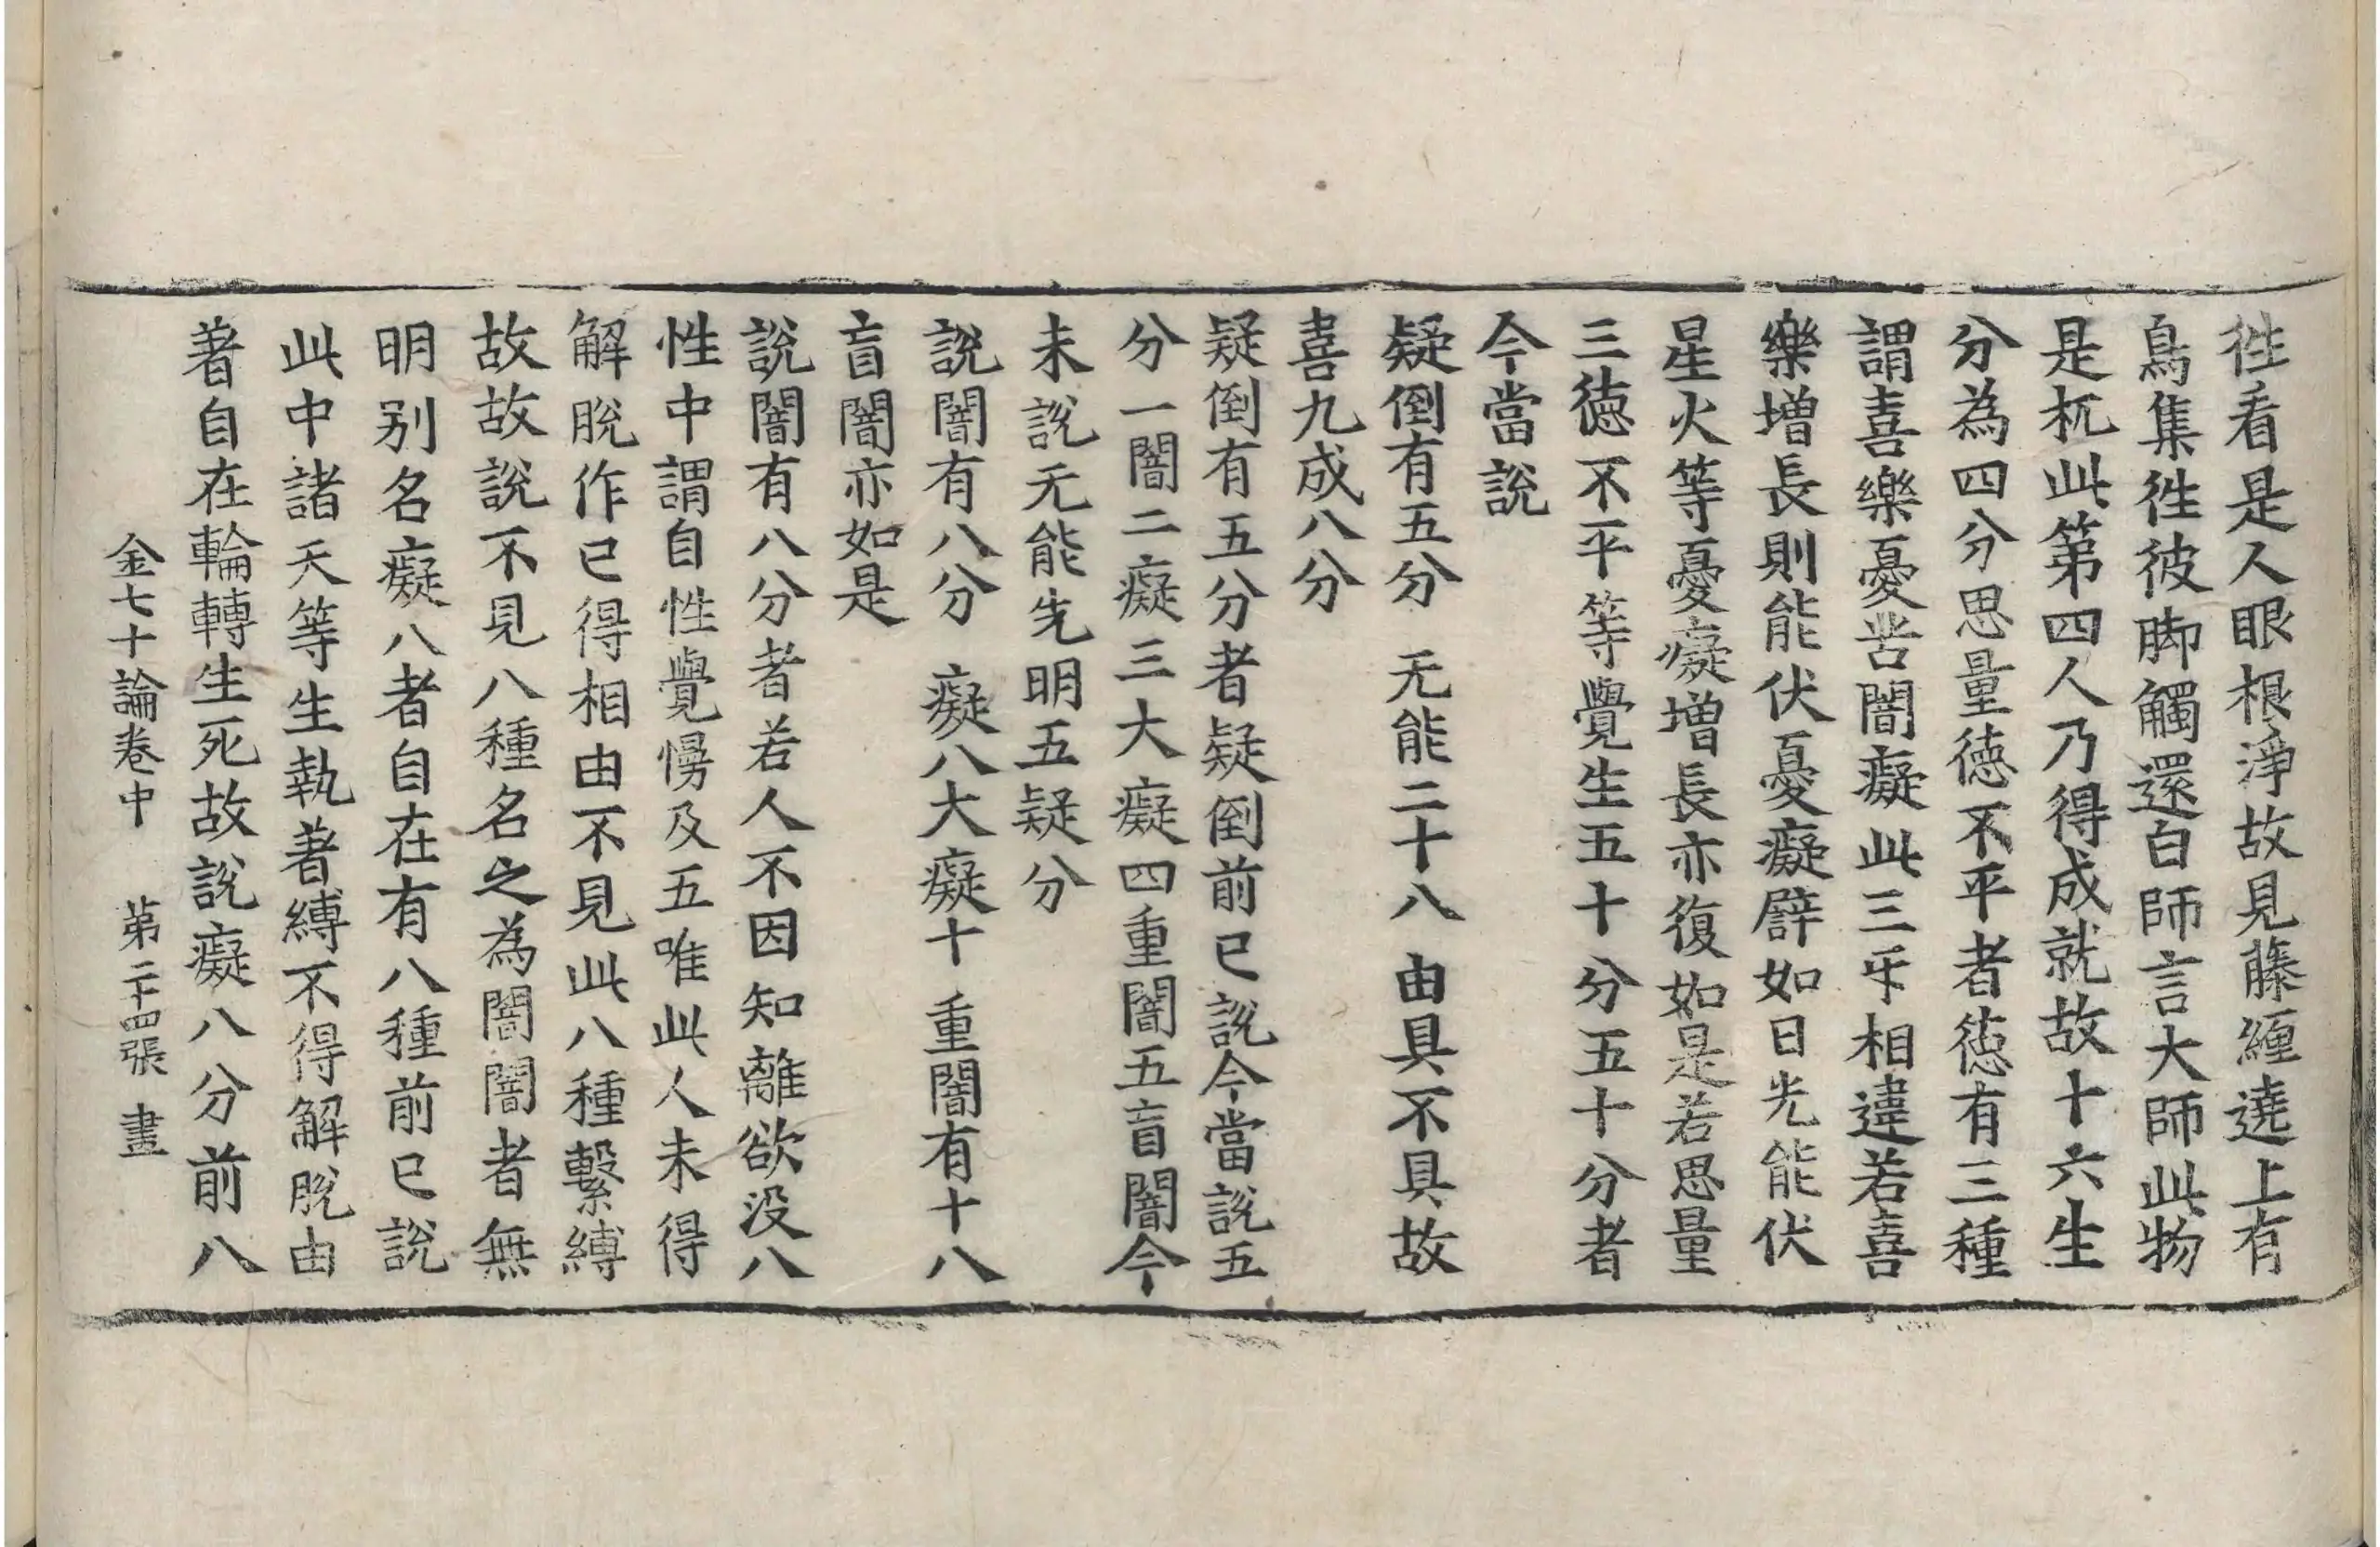 徃看是人眼根淨故見藤纏遶上有
鳥集徃彼脚觸還白師言大師此物
是杌此第四人乃得成就故十六生
分為四分思量德不平者德有三種
謂喜樂憂苦闇癡此三㸦相違若喜
樂增長則能伏憂癡譬如日光能伏
星火等憂癡增長亦復如是若思量
三德不平等覺生五十分五十分者
今當說
疑倒有五分　无能二十八　由具不具故
喜九成八分
疑倒有五分者疑倒前已說今當說五
分一闇二癡三大癡四重闇五盲闇今
未說无能先明五疑分
說闇有八分　癡八大癡十　重闇有十八
盲闇亦如是
說闇有八分者若人不因知離欲没八
性中謂自性覺慢及五唯此人未得
解脫作已得相由不見此八種繫縛
故故說不見八種名之為闇闇者無
明别名癡八者自在有八種前已說
此中諸天等生執著縛不得解脫由
著自在輪轉生死故說癡八分前八
金七十論卷中　第二十四張　畫